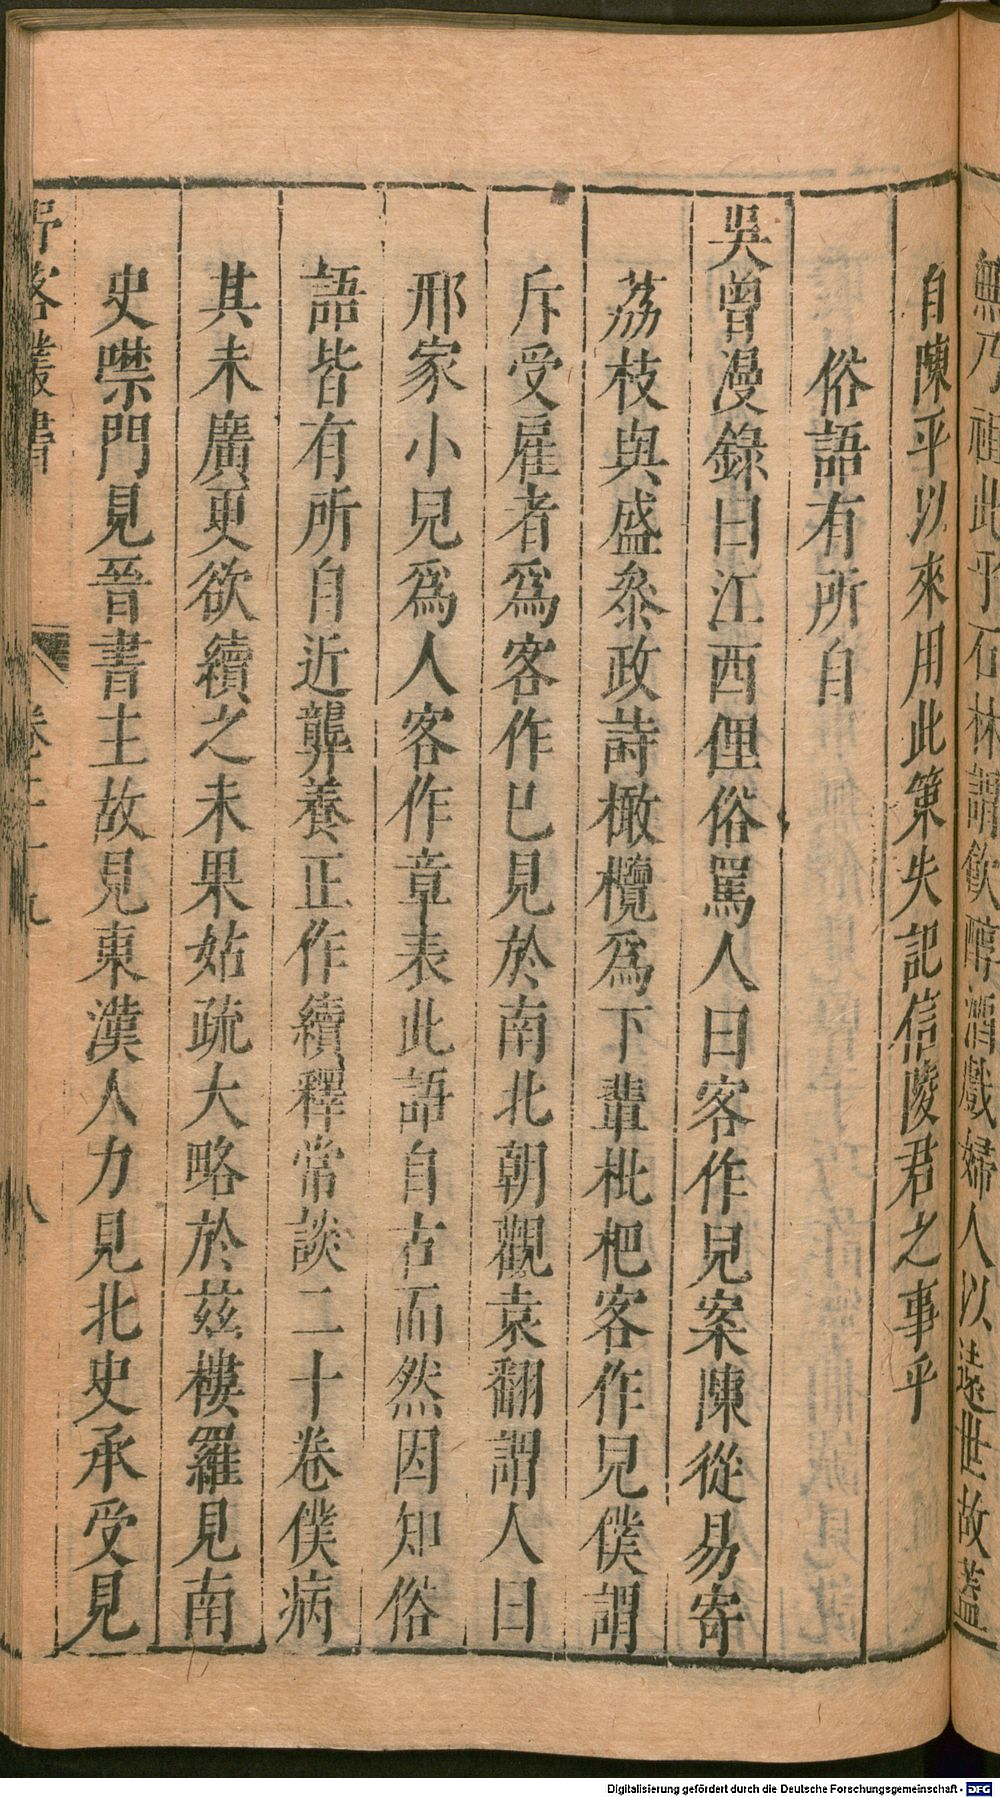 無乃祖此乎石林謂飲醇酒戲婦人以遠世故蓋
自陳平以來用此策失記信陵君之事乎
俗語有所自
吳曾漫錄曰江西俚俗罵人曰客作兒案陳從易寄
荔枝與盛叅政詩橄欖爲下輩枇杷客作兒僕謂
斥受雇者爲客作已見於南北朝觀袁翻謂人曰
邢家小兒爲人客作章表此語自古而然因知俗
語皆有所自近龔養正作續釋常談二十卷僕病
其未廣更欲續之未果姑疏大略於茲樓羅見南
史噤門見晉書主故見東漢人力見北史承受見
野客叢書 卷二十九 八
Digitalisierung gefördert durch die Deutsche Forschungsgemeinschaft - DFG